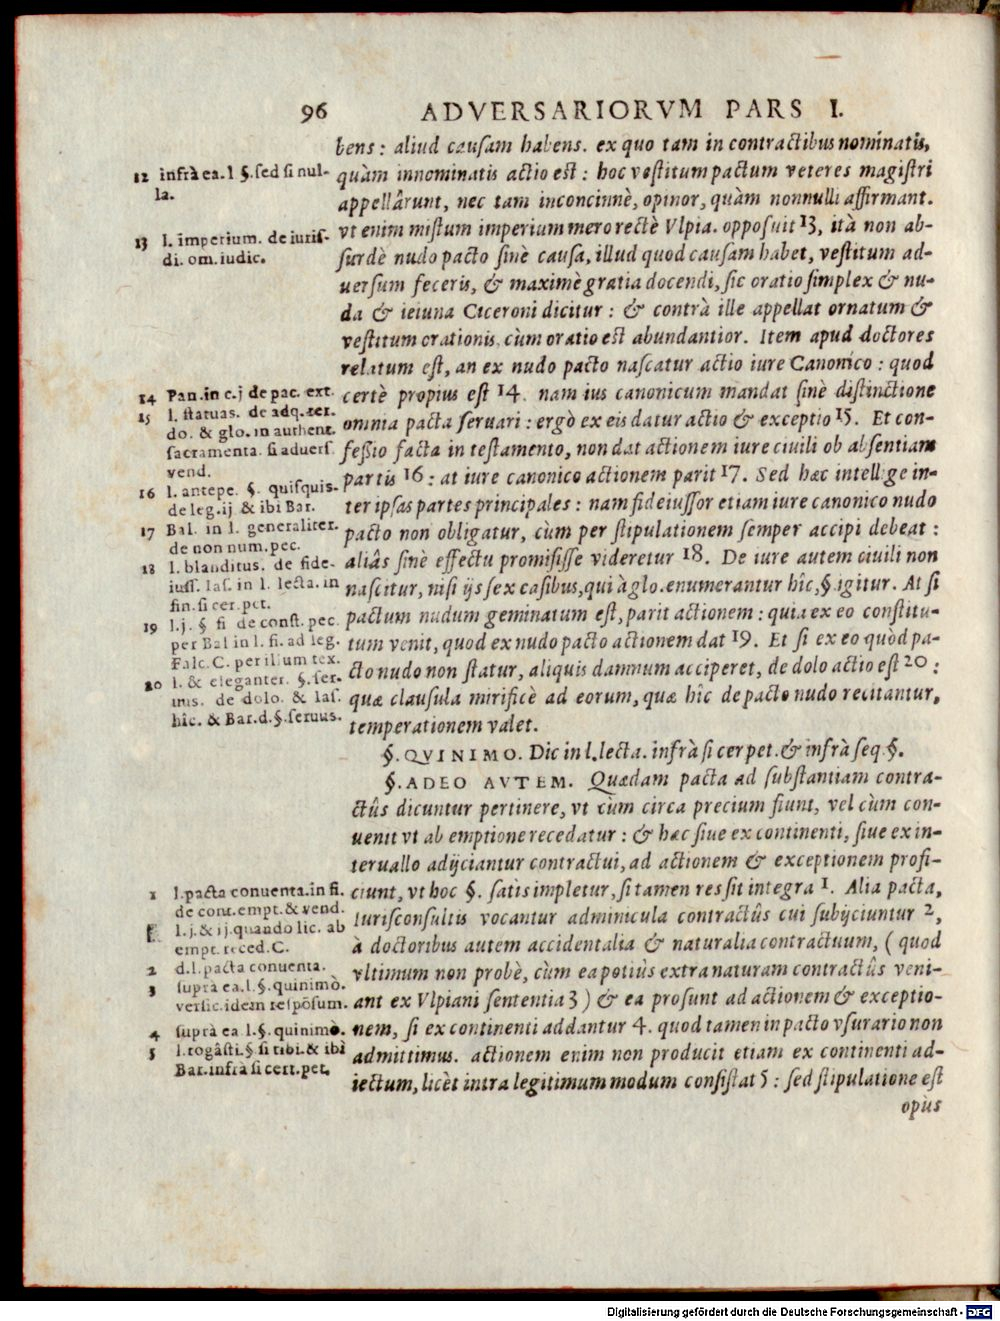 96 ADVERSARIORVM PARS I.
bens: aliud causam habens. ex quo tam in contractibus nominatis,
quàm innominatis actio est: hoc vestitum pactum veteres magistri
appellârunt, nec tam inconcinnè, opinor, quàm nonnulli affirmant.
vt enim mistum imperium mero rectè Vlpia. opposuit 13, ità non ab-
surdè nudo pacto sinè causa, illud quod causam habet, vestitum ad-
uersum feceris, & maximè gratia docendi, sic oratio simplex & nu-
da & ieiuna Ciceroni dicitur: & contrà ille appellat ornatum &
vestitum orationis, cùm oratio est abundantior. Item apud doctores
relatum est, an ex nudo pacto nascatur actio iure Canonico: quod
certè propius est 14. nam ius canonicum mandat sinè distinctione
omnia pacta seruari: ergò ex eis datur actio & exceptio 15. Et con-
fessio facta in testamento, non dat actionem iure ciuili ob absentiam
partis 16: at iure canonico actionem parit 17. Sed hæc intellige in-
ter ipsas partes principales: nam fideiussor etiam iure canonico nudo
pacto non obligatur, cùm per stipulationem semper accipi debeat:
aliâs sinè effectu promisisse videretur 18. De iure autem ciuili non
nascitur, nisi ijs sex casibus, qui à glo. enumerantur hîc, §. igitur. At si
pactum nudum geminatum est, parit actionem: quia ex eo constitu-
tum venit, quod ex nudo pacto actionem dat 19. Et si ex eo quòd pa-
cto nudo non statur, aliquis damnum acciperet, de dolo actio est 20:
quæ clausula mirificè ad eorum, quæ hîc de pacto nudo recitantur,
temperationem valet.
§. QVINIMO. Dic in l. lecta. infrà si cer pet. & infrà seq. §.
§. ADEO AVTEM. Quædam pacta ad substantiam contra-
ctûs dicuntur pertinere, vt cùm circa precium fiunt, vel cùm con-
uenit vt ab emptione recedatur: & hæc siue ex continenti, siue ex in-
teruallo adijciantur contractui, ad actionem & exceptionem profi-
ciunt, vt hoc §. satis impletur, si tamen res sit integra 1. Alia pacta,
Iurisconsultis vocantur adminicula contractûs cui subijciuntur 2,
à doctoribus autem accidentalia & naturalia contractuum, (quod
vltimum non probè, cùm ea potiùs extra naturam contractûs veni-
ant ex Vlpiani sententia 3) & ea prosunt ad actionem & exceptio-
nem, si ex continenti addantur 4. quod tamen in pacto vsurario non
admittimus. actionem enim non producit etiam ex continenti ad-
iectum, licèt intra legitimum modum consistat 5: sed stipulatione est
opùs
12 infrà ea. l §. sed si nul-
la.
13 l. imperium. de iuris-
di. om. iudic.
14 Pan. in c. j de pac. ext.
15 l. statuas. de adq. rer.
do. & glo. in authent.
sacramenta. si aduers.
vend.
16 l. antepe. §. quisquis.
de leg. ij. & ibi Bar.
17 Bal. in l. generaliter.
de non num. pec.
18 l. blanditus. de fide-
iuss. Ias. in l. lecta. in
fin. si cer. pet.
19 l. j. § fi de const. pec.
per Bal in l. fi. ad leg.
Falc. C. per illum tex.
20 l. & eleganter. §. ser-
uus. de dolo. & Ias.
hîc. & Bar. d. §. seruus.
1 l. pacta conuenta. in fi.
de cont. empt. & vend.
l. j. & ij. quando lic. ab
empt. reced. C.
2 d. l. pacta conuenta.
3 suprà ea. l. §. quinimò.
versic. idem respôsum.
4 suprà ea l. §. quinimò.
5 l. rogâsti. §. si tibi. & ibi
Bar. infrà si cert. pet.
Digitalisierung gefördert durch die Deutsche Forschungsgemeinschaft - DFG